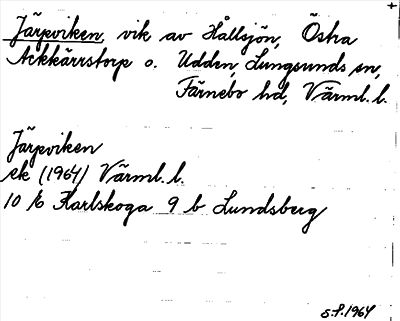 Järpviken, vik av Hållsjön, Östra
Ackkärrstorp o. Udden, Lungsunds sn,
Färnebo hd, Värml. l.
Järpviken
ek (1964) Värml. l.
10 E Karlskoga 9 b Lundsberg
S.F. 1964